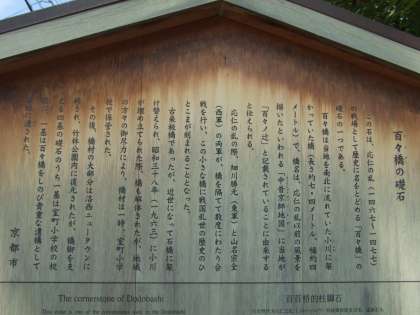 百々橋の礎石
この石は、応仁の乱(一四六七〜一四七七)
の戦場として歴史に名をとどめる「百々橋」の
礎石の一つである。
百々橋は当地を南北に流れていた小川に架
かっていた橋(長さ約七・四メートル、幅約四
メートル)で、橋名は、応仁の乱以前の風景を
描いたといわれる「中昔京師地図」に当地が
「百々ノ辻」と記載されていることに由来する
と伝えられる。
応仁の乱の際、細川勝元(東軍)と山名宗全
(西軍)の両軍が、橋を隔てて数度にわたり合
戦を行い、この小さな橋に戦国乱世の歴史のひ
とこまが刻まれることとなった。
古来板橋であったが、近世になって石橋に架
け替えられ、昭和三十八年(一九六三)に小川
が埋め立てられた際、橋も解体されたが、地域
の方々の御尽力により、橋材は一時、室町小学
校で保管された。
その後、橋材の大部分は洛西ニュータウンに
移され、竹林公園内に復元されたが、橋脚を支
える四基の礎石のうち一基は室町小学校の校
一基は百々橋をしのび貴重な遺構として
残された。
京都市
The cornerstone of Dodobashi
This stone is one of the cornerstones used in the Dodobashi
百百桥的柱脚石